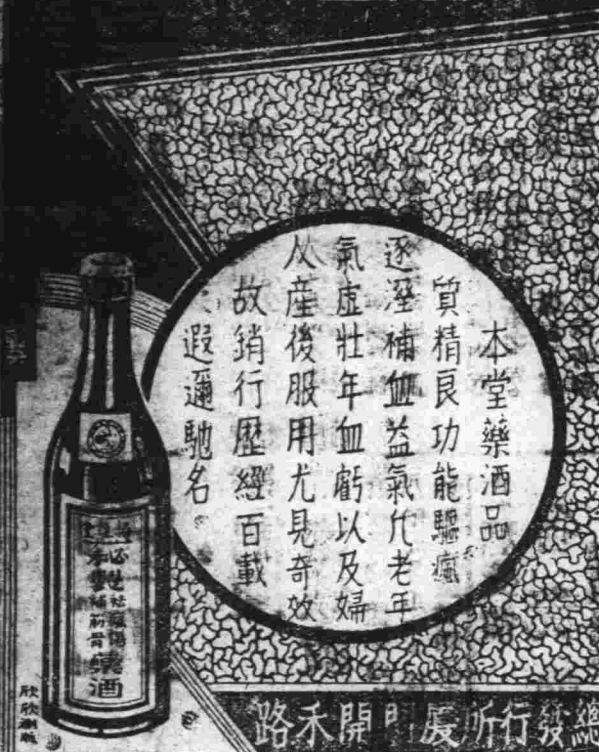 本堂藥酒品
質精良功能驅瘋
逐溼補血益氣凡老年
氣虛壯年血虧以及婦
人産後服用尤見奇效
故銷行歷經百載
遐邇馳名。
補筋骨
藥酒
欣欣
總發行所廈門開禾路